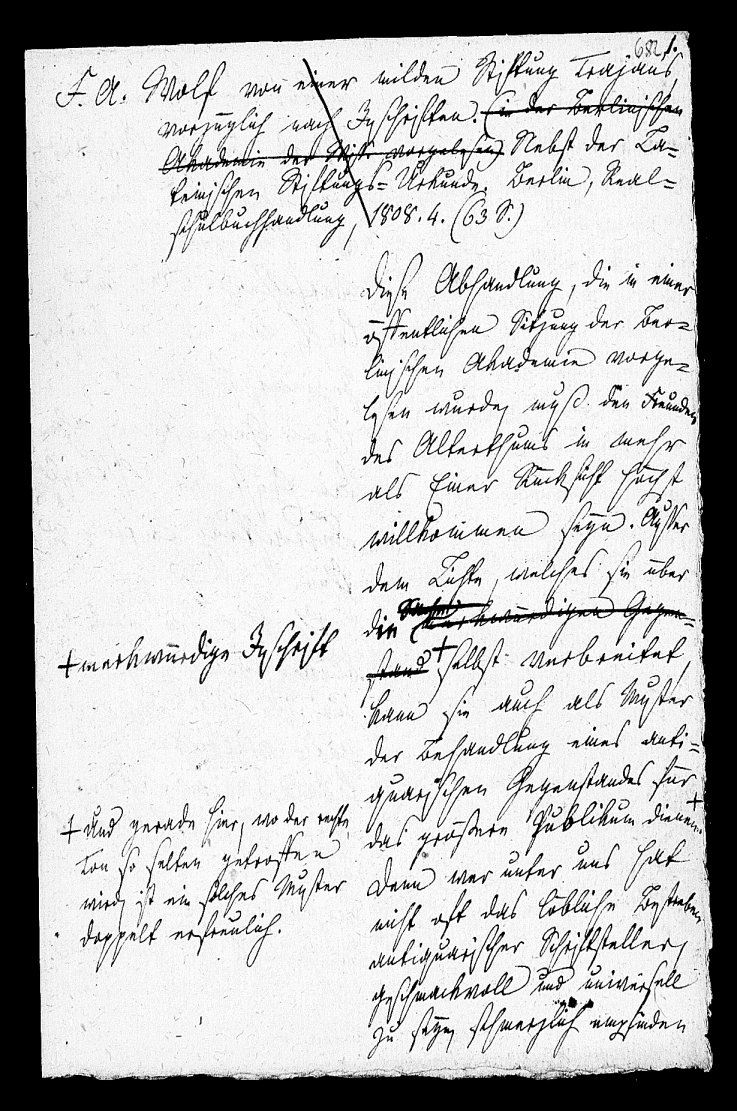 682. 1.
F. A. Wolf von einer milden Stiftung Trajans,
vorzüglich nach Inschriften. (in der Berlinischen
Akademie der Wiss. vorgelesen) Nebst der La-
teinischen Stiftungs-Urkunde. Berlin, Real-
schulbuchhandlung, 1808. 4. (63 S.)
Diese Abhandlung, die in einer
öffentlichen Sitzung der Ber-
linischen Akademie vorge-
lesen wurde, muß den Freunden
des Alterthums in mehr
als Einer Rücksicht höchst
willkommen seyn. Außer
dem Lichte, welches sie über
die merkwürdigen Gegen-
stand + selbst verbreitet,
kann sie auch als Muster
der Behandlung eines anti-
quarischen Gegenstandes für
das größere Publikum dienen +
Denn wer unter uns hat
nicht oft das löbliche Bestreben
antiquarischer Schriftsteller,
geschmackvoll und universell
zu seyn, schmerzlich empfinden
+ merkwürdige Inschrift
+ Und gerade hier, wo der rechte
Ton so selten getroffen
wird, ist ein solches Muster
doppelt erfreulich.